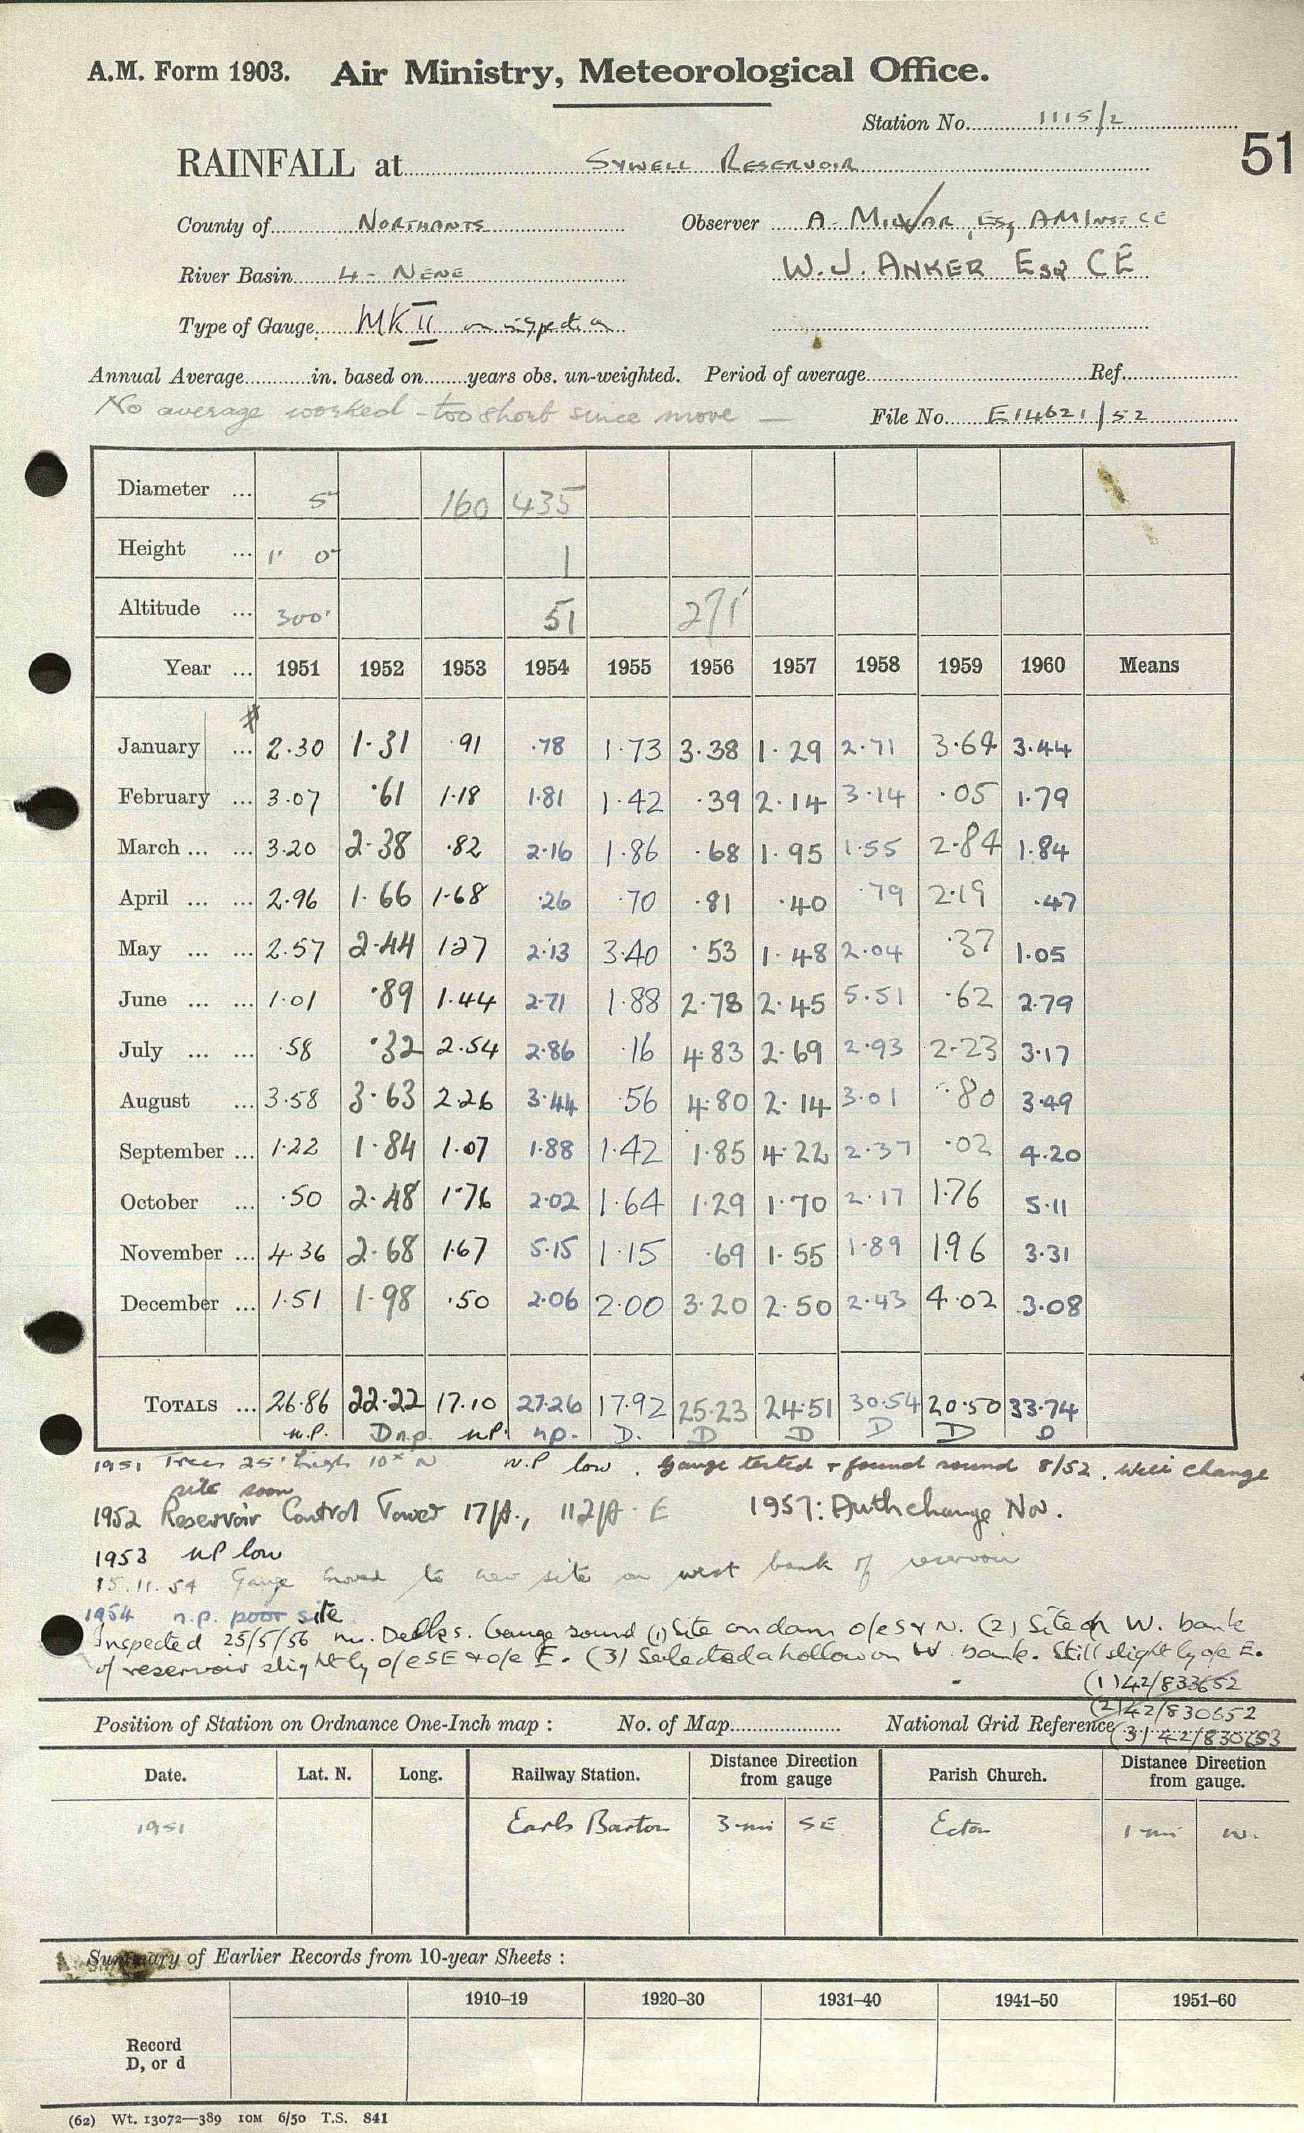 A.M. Form 1903. Air Ministry, Meteorological Office.
Station No. 1115/2
51
RAINFALL at SYWELL RESERVOIR
County of NORTHANTS Observer A. MILLAR, ESQ, AMINST.CE
River Basin 4 - NENE W.J. ANKER ESQ CE
Type of Gauge MK II on inspection
Annual Average in. based on years obs. un-weighted. Period of average Ref.
No average worked - too short since move —
File No. E14621/52
Diameter ... 5 160 435
Height ... 1' 0" 1
Altitude ... 300' 51 271'
Year ... 1951 1952 1953 1954 1955 1956 1957 1958 1959 1960 Means
January ... 2.30 1.31 .91 .78 1.73 3.38 1.29 2.71 3.64 3.44
February ... 3.07 .61 1.18 1.81 1.42 .39 2.14 3.14 .05 1.79
March ... ... 3.20 2.38 .82 2.16 1.86 .68 1.95 1.55 2.84 1.84
April ... ... 2.96 1.66 1.68 .26 .70 .81 .40 .79 2.19 .47
May ... ... 2.57 2.44 1.27 2.13 3.40 .53 1.48 2.04 .37 1.05
June ... ... 1.01 .89 1.44 2.71 1.88 2.78 2.45 5.51 .62 2.79
July ... ... .58 .32 2.54 2.86 .16 4.83 2.69 2.93 2.23 3.17
August ... 3.58 3.63 2.26 3.44 .56 4.80 2.14 3.01 .80 3.49
September ... 1.22 1.84 1.07 1.88 1.42 1.85 4.22 2.37 .02 4.20
October ... .50 2.48 1.76 2.02 1.64 1.29 1.70 2.17 1.76 5.11
November ... 4.36 2.68 1.67 5.15 1.15 .69 1.55 1.89 1.96 3.31
December ... 1.51 1.98 .50 2.06 2.00 3.20 2.50 2.43 4.02 3.08
TOTALS ... 26.86 22.22 17.10 27.26 17.92 25.23 24.51 30.54 20.50 33.74
n.P. D n.p. n.P. n.p. D. D D D D D
1951 Trees 25' high 10x N n.P low. Gauge tested + found sound 8/52. Will change
site soon
1952 Reservoir Control Tower 17ft., 112ft E 1957: Auth change Nov.
1953 n.P low
15.11.54 Gauge moved to new site on west bank of reservoir
1954 n.p. poor site
Inspected 25/5/56 Mr. Delks. Gauge sound (1) Site on dam o/e S & N. (2) Site on W. bank
of reservoir slightly o/e SE & o/e E. (3) Selected a hollow on W. bank. Still slightly o/e E.
(1) 42/833652
(2) 42/830652
Position of Station on Ordnance One-Inch map : No. of Map National Grid Reference (3) 42/830653
Date. Lat. N. Long. Railway Station. Distance Direction from gauge Parish Church. Distance Direction from gauge.
1951 Earls Barton 3 mi SE Ecton 1 mi W.
Summary of Earlier Records from 10-year Sheets :
1910–19 1920–30 1931–40 1941–50 1951–60
Record
D, or d
(62) Wt. 13072—389 10M 6/50 T.S. 841